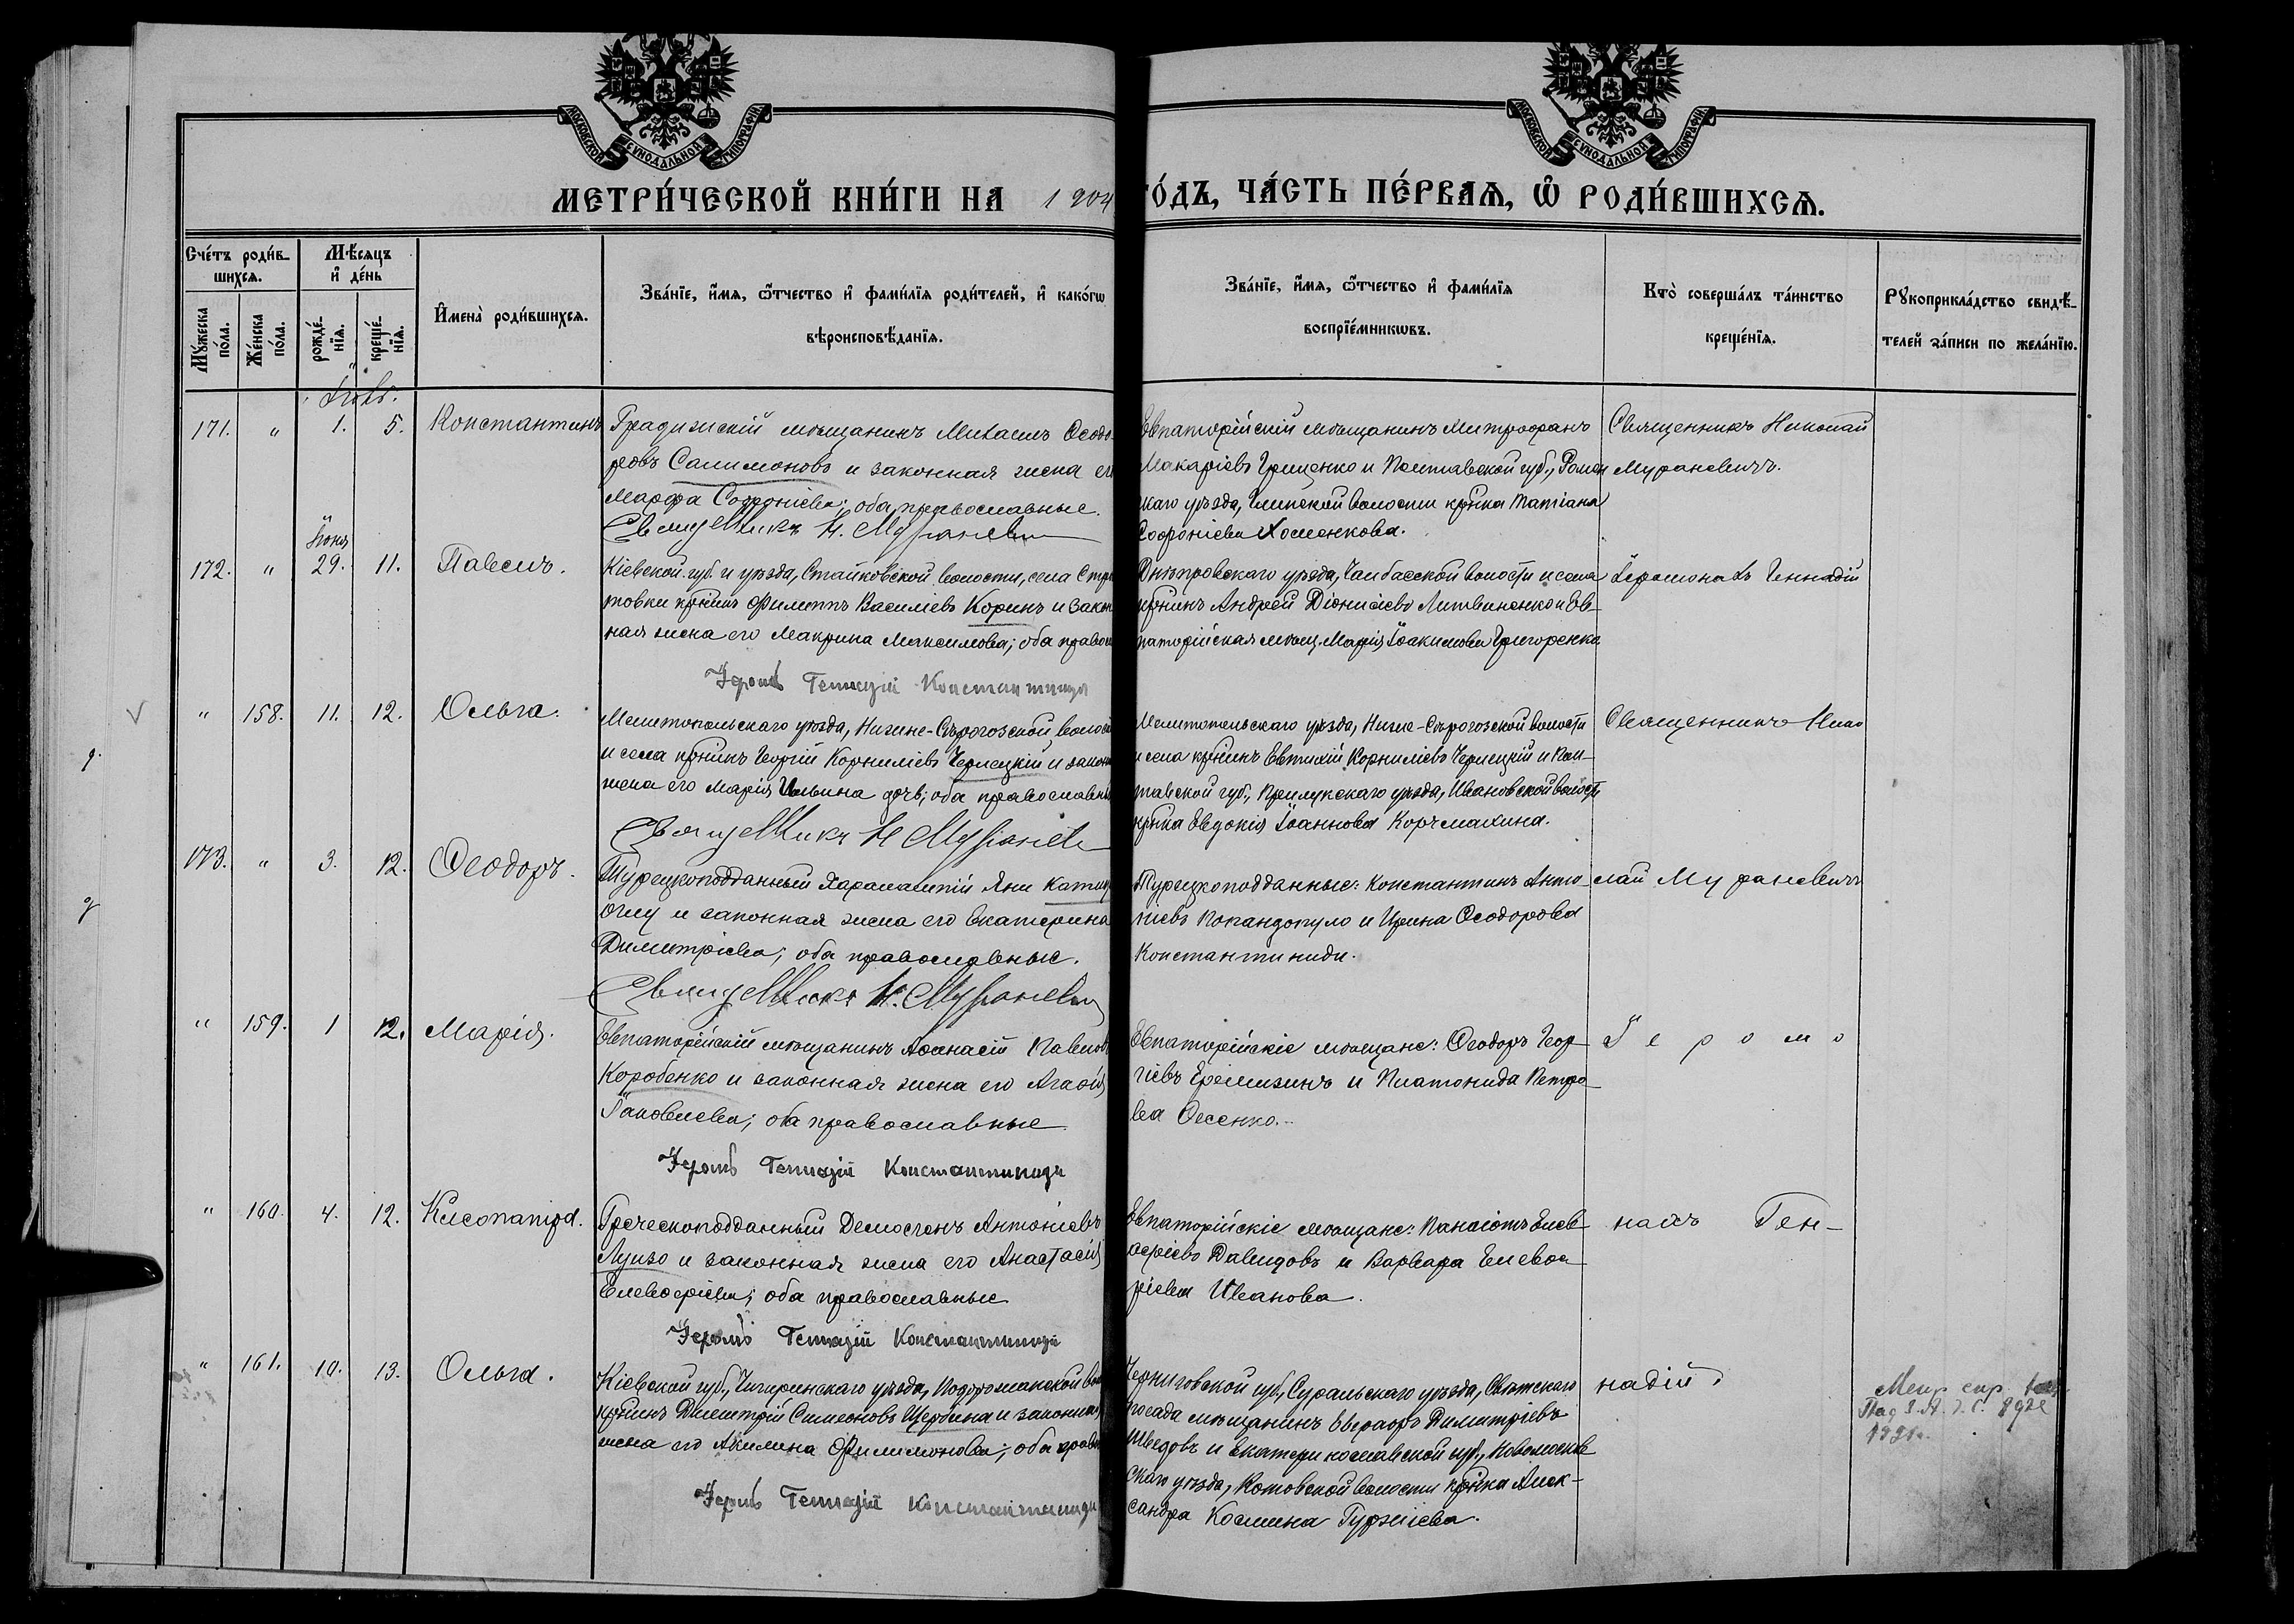 МОСКОВСКОЙ СѴНОДАЛЬНОЙ ТИПОГРАФІИ
МОСКОВСКОЙ СѴНОДАЛЬНОЙ ТИПОГРАФІИ
МЕТРИ́ЧЕСКОЙ КНИ́ГИ НА 1904
ГО́ДЪ, ЧА́СТЬ ПЕ́РВАѦ, Ѽ РОДИ́ВШИХСѦ.
Сче́тъ роди́в-
шихсѧ.
Мѣ́сѧцъ
и҆ де́нь
Мꙋ́жеска по́ла.
Же́нска по́ла.
рожде́-
нїѧ.
креще́-
нїѧ.
И҆мена̀ роди́вшихсѧ.
Зва́нїе, и҆́мѧ, ѻ҆́тчество и҆ фами́лїѧ роди́телей, и҆ како́гѡ
вѣроисповѣ́данїѧ.
Зва́нїе, и҆́мѧ, ѻ҆́тчество и҆ фами́лїѧ
воспрїе́мникѡвъ.
Кто̀ соверша́лъ та́инство
креще́нїѧ.
Рꙋкоприкла́дство свидѣ́-
телей за́писи по жела́нїю.
171. " 1. 5. Константинъ
Градижскій мѣщанинъ Михаилъ Ѳеодо-
ровъ Салимоновъ и законная жена его
Марѳа Софроніева; оба православные.
Священникъ Н. Мурановичъ
Евпаторійскій мѣщанинъ Митрофанъ
Макаріевъ Грищенко и Полтавской губ., Ромен
скаго уѣзда, Глинской волости кр̃нка Татіана
Софроніева Хоменкова.
Священникъ Николай
Мурановичъ.
Іюня
172. " 29. 11. Павелъ.
Кіевской губ. и уѣзда, Стайковской волости, села Стри
товки кр̃нинъ Филиппъ Василіевъ Коринъ и закон
ная жена его Макрина Максимова; оба правосл
Іером. Геннадій Константиниди
Днѣпровскаго уѣзда, Чалбасской волости и села
кр̃нинъ Андрей Діонисіевъ Литвиненко и Ев-
паторійская мѣщ. Марія Іоакимова Григоренко
Іеромонахъ Геннадій
" 158. 11. 12. Ольга.
Мелитопольскаго уѣзда, Нижне-Сѣрогозской волости
и села кр̃нинъ Георгій Корниліевъ Чернецкій и законн
жена его Марія Ильина дочь; оба православные
Священникъ Н Мурановичъ
Мелитопольскаго уѣзда, Нижне-Сѣрогозской волости
и села кр̃нинъ Евтихій Корниліевъ Чернецкій и Пол-
тавской губ., Прилукскаго уѣзда, Ивановской волости
кр̃нка Евдокія Іоаннова Корчмахина.
Священникъ Нико
173. " 3. 12. Ѳеодоръ.
Турецкоподданный Харалампій Яни
оглу и законная жена его Екатерина
Димитріева; оба православные.
Священникъ Н. Мурановичъ
Турецкоподданные: Константинъ Анто-
ніевъ Попандопуло и Ирина Ѳеодорова
Константиниди.
лай Мурановичъ
" 159. 1 12. Марія.
Евпаторійскій мѣщанинъ Аѳанасій Павловъ
Коробенко и законная жена его Агаѳія
Іаковлева; оба православные
Іером. Геннадій Константиниди
Евпаторійскіе мѣщане: Ѳеодоръ Геор-
гіевъ и Платонида Петро-
ва Фесенко.
Іеромо
" 160. 4. 12. Клеопатра.
Греческоподданный Демосѳенъ Антоніевъ
Лузо и законная жена его Анастасія
Елевѳеріева; оба православные
Іером. Геннадій Константиниди
Евпаторійскіе мѣщане: Панаіотъ Елев-
ѳеріевъ Давидовъ и Варвара Елевѳе
ріева Иванова.
нахъ Ген-
" 161. 10. 13. Ольга.
Кіевской губ., Чигиринскаго уѣзда, Подорожанской вол
кр̃нинъ Димитрій Симеоновъ Щербина и законная
жена его Акилина Филимонова; оба прав
Іером. Геннадій Константиниди
Черниговской губ., Суражскаго уѣзда, Святскаго
посада мѣщанинъ Евграфъ Димитріевъ
Шведовъ и Екатеринославской губ., Новомосков
скаго уѣзда, Котовской волости кр̃нка Алек-
сандра Космина Гуржіева.
надій.